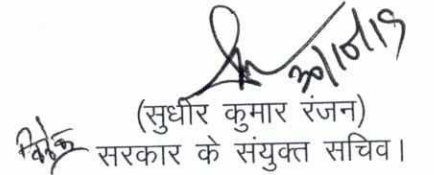 30/10/19
(सुधीर कुमार रंजन)
सरकार के संयुक्त सचिव।